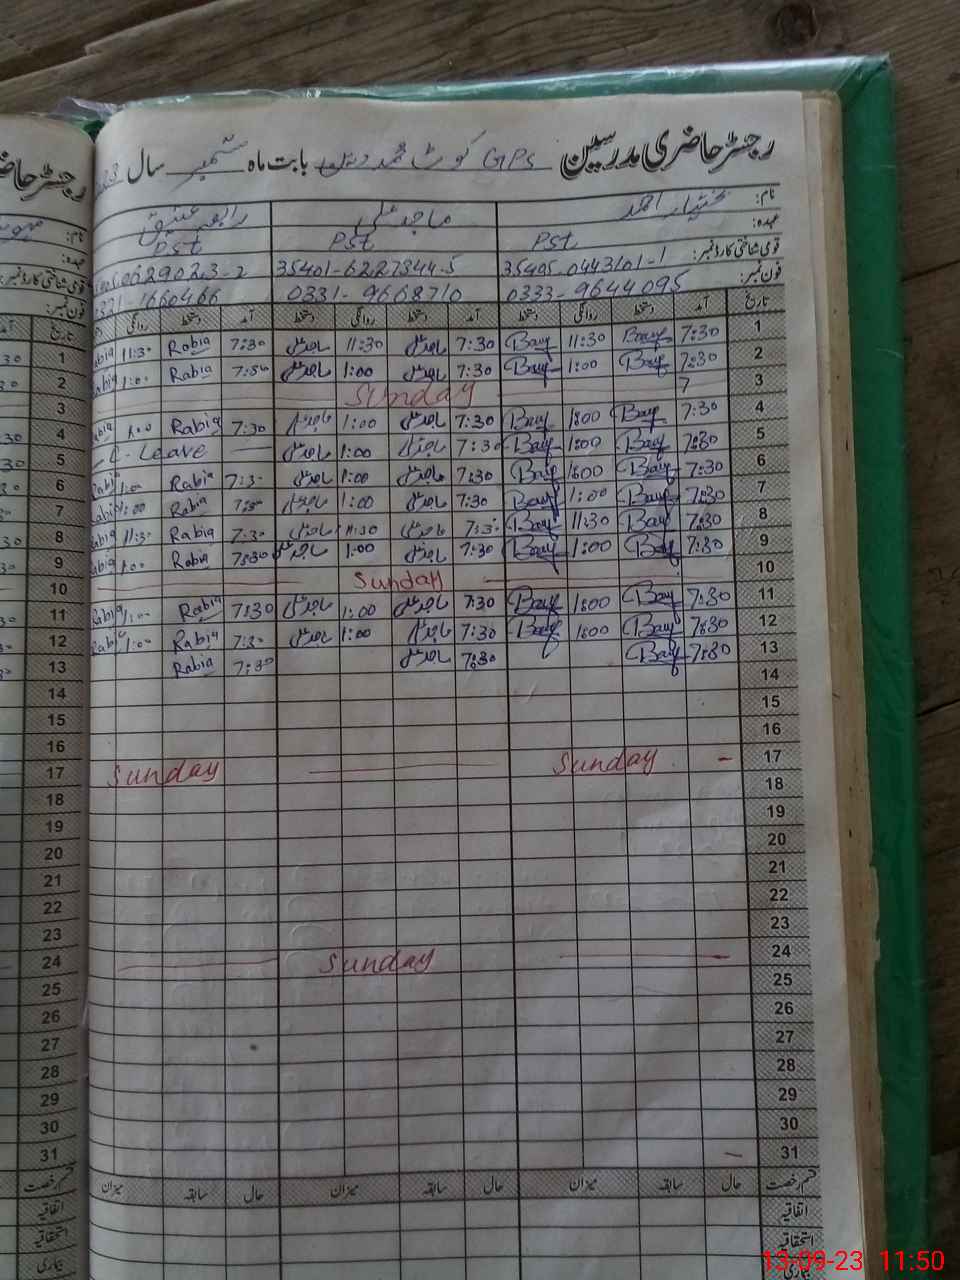 رجسٹر حاضری مدرسین GPS کوٹ محمد بابت ماہ ستمبر سال
نام: بختیار احمد ماجد علی رابعہ
عہدہ: Pst Pst Pst
قومی شناختی کارڈ نمبر: 35405-0443101-1 35401-6227344-5
فون نمبر: 0333-9644095 0331-9668710 0321-1660466
تاریخ آمد دستخط روانگی دستخط آمد دستخط روانگی دستخط آمد دستخط روانگی
1 7:30 Bay 11:30 Bay 7:30 ماجد علی 11:30 ماجد علی 7:30 Rabia 11:30 Rabia
2 7:30 Bay 1:00 Bay 7:30 ماجد علی 1:00 ماجد علی Rabia 1:00 Rabia
3 7 Sunday
4 7:30 Bay 1:00 Bay 7:30 ماجد علی 1:00 ماجد علی 7:30 Rabia 1:00 Rabia
5 7:30 Bay 1:00 Bay 7:30 ماجد علی 1:00 ماجد علی C-Leave
6 7:30 Bay 1:00 Bay 7:30 ماجد علی 1:00 ماجد علی 7:30 Rabia 1:00 Rabia
7 7:30 Bay 1:00 Bay 7:30 ماجد علی 1:00 ماجد علی 7:30 Rabia 1:00 Rabia
8 7:30 Bay 11:30 Bay 7:30 ماجد علی 11:30 ماجد علی 7:30 Rabia 11:30 Rabia
9 7:30 Bay 1:00 Bay 7:30 ماجد علی 1:00 ماجد علی 7:30 Rabia 1:00 Rabia
10 Sunday
11 7:30 Bay 1:00 Bay 7:30 ماجد علی 1:00 ماجد علی 7:30 Rabia 1:00 Rabia
12 7:30 Bay 1:00 Bay 7:30 ماجد علی 1:00 ماجد علی 7:30 Rabia 1:00 Rabia
13 7:30 Bay 7:30 ماجد علی 7:30 Rabia
14
15
16
17 Sunday Sunday
18
19
20
21
22
23
24 Sunday
25
26
27
28
29
30
31
قسم رخصت حال سابقہ میزان حال سابقہ میزان حال سابقہ میزان
اتفاقیہ
استحقاقیہ
بیماری
رجسٹر حاضری
نام:
عہدہ:
قومی شناختی کارڈ نمبر:
فون نمبر:
تاریخ
1
2
3
4
5
6
7
8
9
10
11
12
13
14
15
16
17
18
19
20
21
22
23
24
25
26
27
28
29
30
31
قسم رخصت
اتفاقیہ
استحقاقیہ
بیماری
13-09-23 11:50